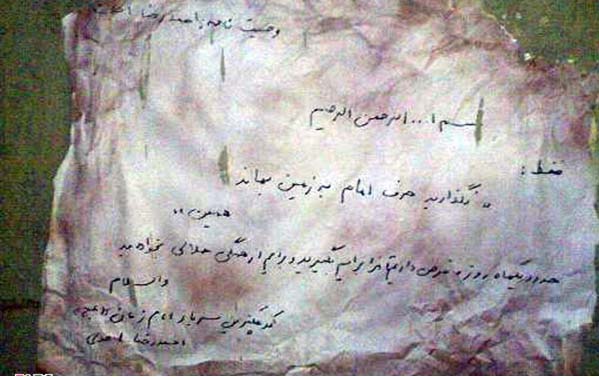 وصیت نامه احمدرضا احدی
بسم ا... الرحمن الرحیم
فقط:
« نگذارید حرف امام به زمین بماند
همین »
حدود یکماه روزه قرض دارم برایم بگیرید و برایم از همگی حلالی بخواهید
والسلام
کوچکترین سرباز امام زمان (عج)
احمدرضا احدی